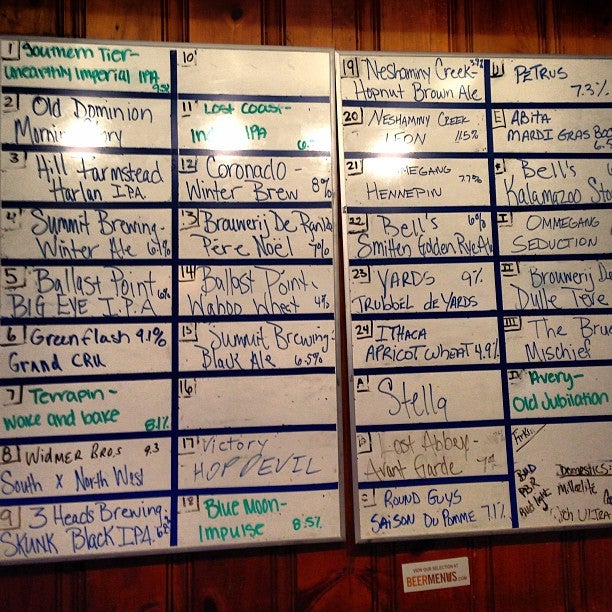 1 Southern Tier-
Unearthly Imperial IPA
2 Old Dominion
Morning Glory
3 Hill Farmstead
Harlan IPA
4 Summit Brewing-
Winter Ale 6.1%
5 Ballast Point
BIG EYE I.P.A 6%
6 Greenflash 9.1%
GRAND CRU
7 Terrapin-
wake and bake
8.1%
8 WIDMER BROS 9.3
South x North West
9 3 Heads Brewing
SKUNK Black IPA
10
11 Lost Coast-
IPA
12 Coronado -
Winter Brew 8%
13 Brouwerij De Ranke
Père Noël 7%
14 Ballast Point
Wahoo Wheat 4%
15 Summit Brewing-
Black Ale 6.5%
16
17 Victory
HOPDEVIL
18 Blue Moon-
Impulse 8.5%
19 Neshaminy Creek-
Hopnut Brown Ale
20 NESHAMINY CREEK
LEON 11.5%
21 OMMEGANG
HENNEPIN 7.7%
22 Bell's 6%
Smitten Golden Rye Ale
23 YARDS 9%
TRUBBEL de YARDS
24 ITHACA
APRICOT WHEAT 4.9%
A Stella
B Lost Abbey-
Avant Garde 7%
C ROUND GUYS
SAISON DU POMME 7.1%
D PETRUS
7.3%
E ABITA
MARDI GRAS
Bell's
Kalamazoo
I OMMEGANG
SEDUCTION
II Brouwerij
Dulle Teve
III The
Mischief
IV Avery-
Old Jubilation
BUD
PBR
Bud light
Domestics:
Miller lite
ULTRA
VIEW OUR SELECTION AT
BEERMENUS.COM